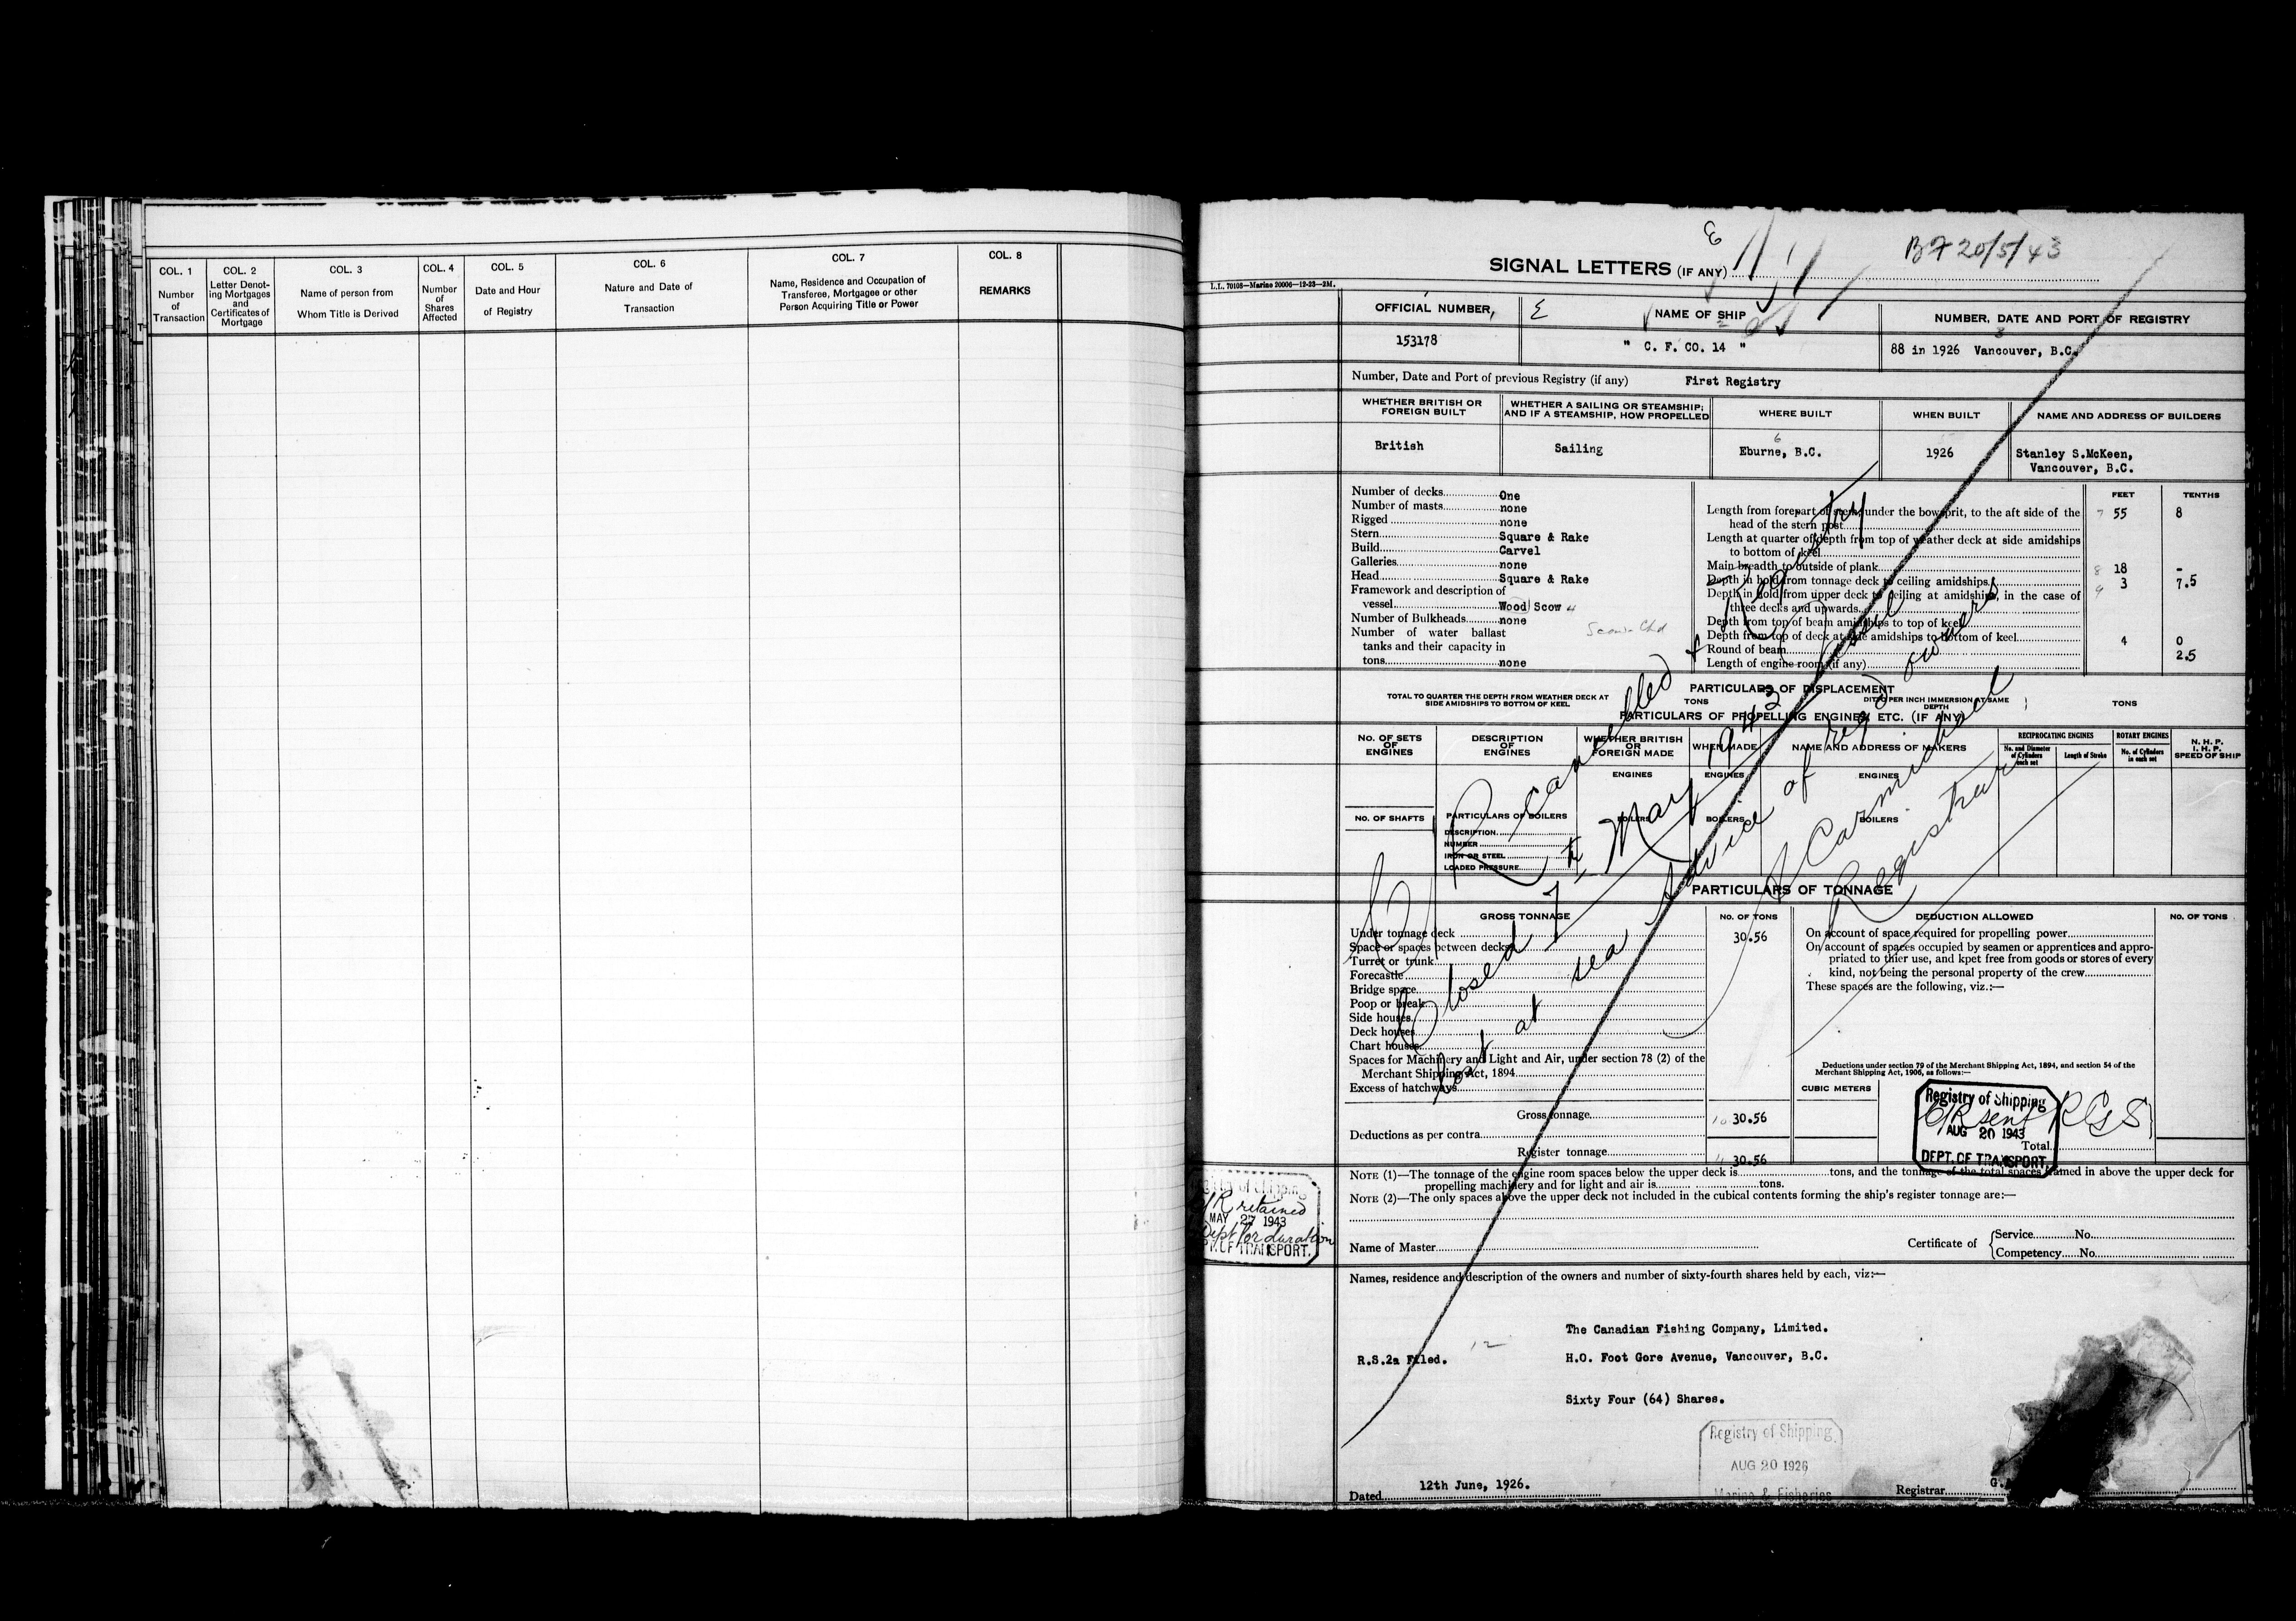 COL. 1
Number
of
Transaction
COL. 2
Letter Denot-
ing Mortgages
and
Certificates of
Mortgage
COL. 3
Name of person from
Whom Title is Derived
COL. 4
Number
of
Shares
Affected
COL. 5
Date and Hour
of Registry
COL. 6
Nature and Date of
Transaction
COL. 7
Name, Residence and Occupation of
Transferee, Mortgagee or other
Person Acquiring Title or Power
COL. 8
REMARKS
BF 20/5/43
SIGNAL LETTERS (IF ANY)
L.L. 70108—Marine 20006—12-23—2M.
OFFICIAL NUMBER, NAME OF SHIP NUMBER, DATE AND PORT OF REGISTRY
153178 " C. F. CO. 14 " 88 in 1926 Vancouver, B.C.
Number, Date and Port of previous Registry (if any) First Registry
WHETHER BRITISH OR
FOREIGN BUILT
WHETHER A SAILING OR STEAMSHIP;
AND IF A STEAMSHIP, HOW PROPELLED
WHERE BUILT WHEN BUILT NAME AND ADDRESS OF BUILDERS
British Sailing Eburne, B.C. 1926 Stanley S.McKeen,
Vancouver, B.C.
Number of decks One
Number of masts none
Rigged none
Stern Square & Rake
Build Carvel
Galleries none
Head Square & Rake
Framework and description of
vessel Wood Scow
Number of Bulkheads none
Number of water ballast
tanks and their capacity in
tons none
FEET TENTHS
Length from forepart of stem, under the bowsprit, to the aft side of the
head of the stern post 55 8
Length at quarter of depth from top of weather deck at side amidships
to bottom of keel
Main breadth to outside of plank 18 -
Depth in hold from tonnage deck to ceiling amidships 3 7.5
Depth in hold from upper deck to ceiling at amidships, in the case of
three decks and upwards
Depth from top of beam amidships to top of keel
Depth from top of deck at side amidships to bottom of keel 4 0
Round of beam 2.5
Length of engine room (if any)
PARTICULARS OF DISPLACEMENT
TOTAL TO QUARTER THE DEPTH FROM WEATHER DECK AT
SIDE AMIDSHIPS TO BOTTOM OF KEEL
TONS
DITTO PER INCH IMMERSION AT SAME
DEPTH
TONS
PARTICULARS OF PROPELLING ENGINES, ETC. (IF ANY)
No. OF SETS
OF
ENGINES
DESCRIPTION
OF
ENGINES
WHETHER BRITISH
OR
FOREIGN MADE
WHEN MADE
NAME AND ADDRESS OF MAKERS
RECIPROCATING ENGINES
No. and Diameter
of Cylinders
each set
Length of Stroke
ROTARY ENGINES
No. of Cylinders
in each set
N. H. P.
I. H. P.
SPEED OF SHIP
ENGINES ENGINES ENGINES
NO. OF SHAFTS
PARTICULARS OF BOILERS
BOILERS BOILERS BOILERS
DESCRIPTION
NUMBER
IRON OR STEEL
LOADED PRESSURE
C R Cancelled & Registry
Closed 7th May 1943 Vessel
lost at sea Advice of regd owners
A Carmichael
Registrar
PARTICULARS OF TONNAGE
GROSS TONNAGE No. OF TONS
Under tonnage deck 30.56
Space or spaces between decks
Turret or trunk
Forecastle
Bridge space
Poop or break
Side houses
Deck houses
Chart houses
Spaces for Machinery and Light and Air, under section 78 (2) of the
Merchant Shipping Act, 1894
Excess of hatchways
Gross tonnage 30.56
Deductions as per contra
Register tonnage 30.56
DEDUCTION ALLOWED No. OF TONS
On account of space required for propelling power
On account of spaces occupied by seamen or apprentices and appro-
priated to thier use, and kpet free from goods or stores of every
kind, not being the personal property of the crew
These spaces are the following, viz.:—
Deductions under section 79 of the Merchant Shipping Act, 1894, and section 54 of the
Merchant Shipping Act, 1906, as follows:—
CUBIC METERS
Total
Registry of Shipping
C/R sent RGS
AUG 20 1943
DEPT. OF TRANSPORT.
NOTE (1)—The tonnage of the engine room spaces below the upper deck is tons, and the tonnage of the total spaces framed in above the upper deck for
propelling machinery and for light and air is tons.
NOTE (2)—The only spaces above the upper deck not included in the cubical contents forming the ship's register tonnage are:—
of Shipping
C/R retained
MAY 27 1943
Dept for duration
DEPT. OF TRANSPORT.
Name of Master
Certificate of
Service No.
Competency No.
Names, residence and description of the owners and number of sixty-fourth shares held by each, viz:—
The Canadian Fishing Company, Limited.
R.S.2a Filed. H.O. Foot Gore Avenue, Vancouver, B.C.
Sixty Four (64) Shares.
Registry of Shipping
AUG 20 1926
Marine & Fisheries
Dated 12th June, 1926.
Registrar G.